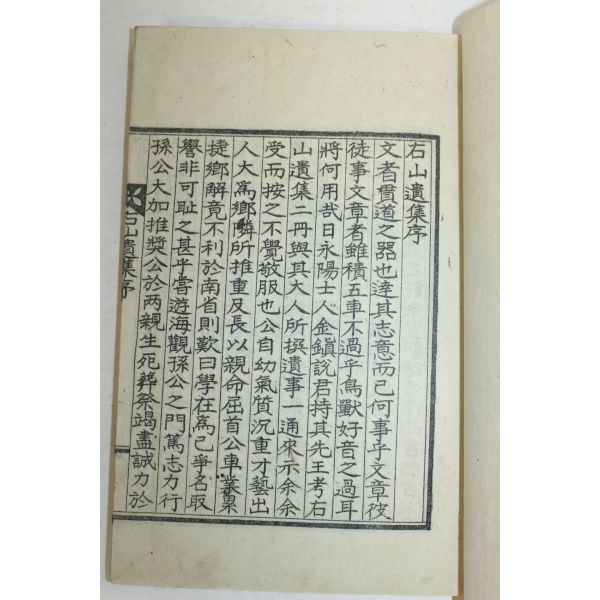 右山遺集序
文者貫道之器也達其志意而已何事乎文章彼
徒事文章者雖積五車不過乎鳥獸好音之過耳
將何用哉日永陽士人金鎭說君持其先王考右
山遺集二冊與其大人所撰遺事一通來示余余
受而按之不覺敬服也公自幼氣質沉重才藝出
人大爲鄕隣所推重及長以親命屈首公車叢累
捷鄕解竟不利於南省則歎曰學在爲己爭名取
譽非可耻之甚乎嘗遊海觀孫公之門篤志力行
孫公大加推獎公於兩親生死葬祭竭盡誠力於
右山遺集序